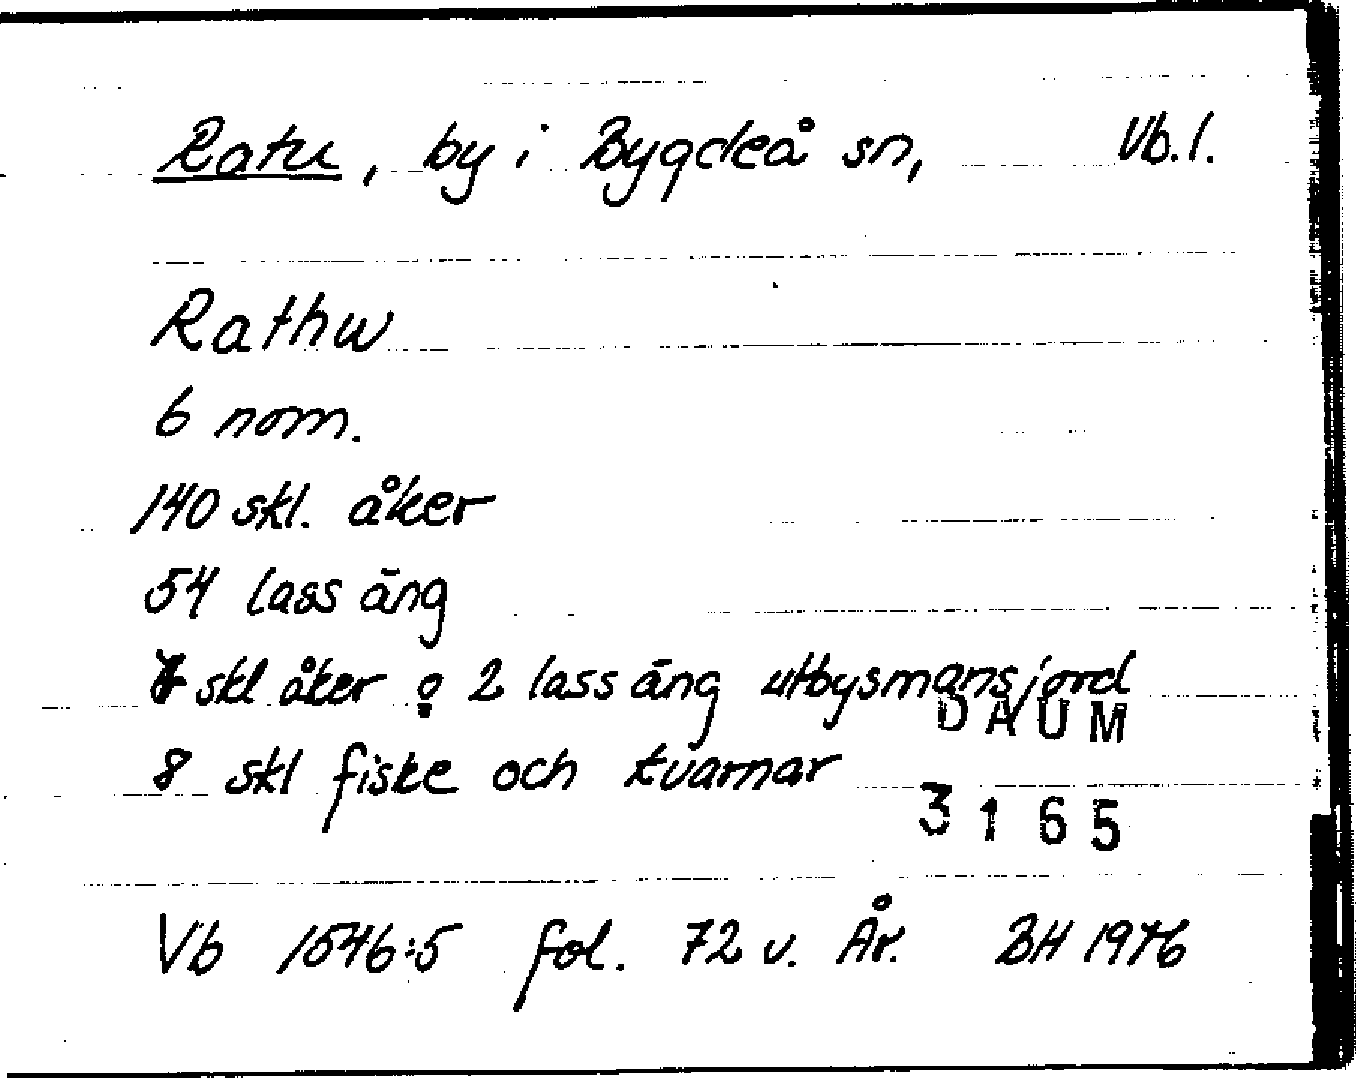 Ratu, by i Bygdeå sn, Vb.l.
Rathw
6 nom.
140 skl. åker
54 lass äng
skl åker o 2 lass äng utbysmansjord
DAUM
8 skl fiske och kvarnar
3165
Vb 1546:5 fol. 72 v. År. BH 1976